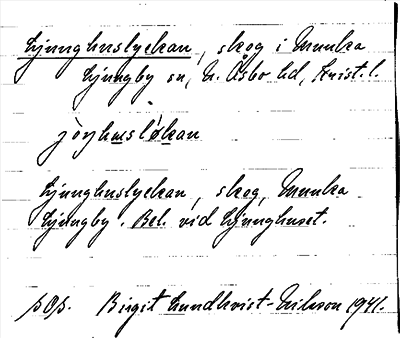 Ljunghuslyckan, skog i Munka
Ljungby sn, N. Åsbo hd, Krist. l.
jòŋhusløkan
Ljunghuslyckan, skog, Munka
Ljungby. Bel. vid Ljunghuset.
sOs. Birgit Lundkvist-Erikson 1941.